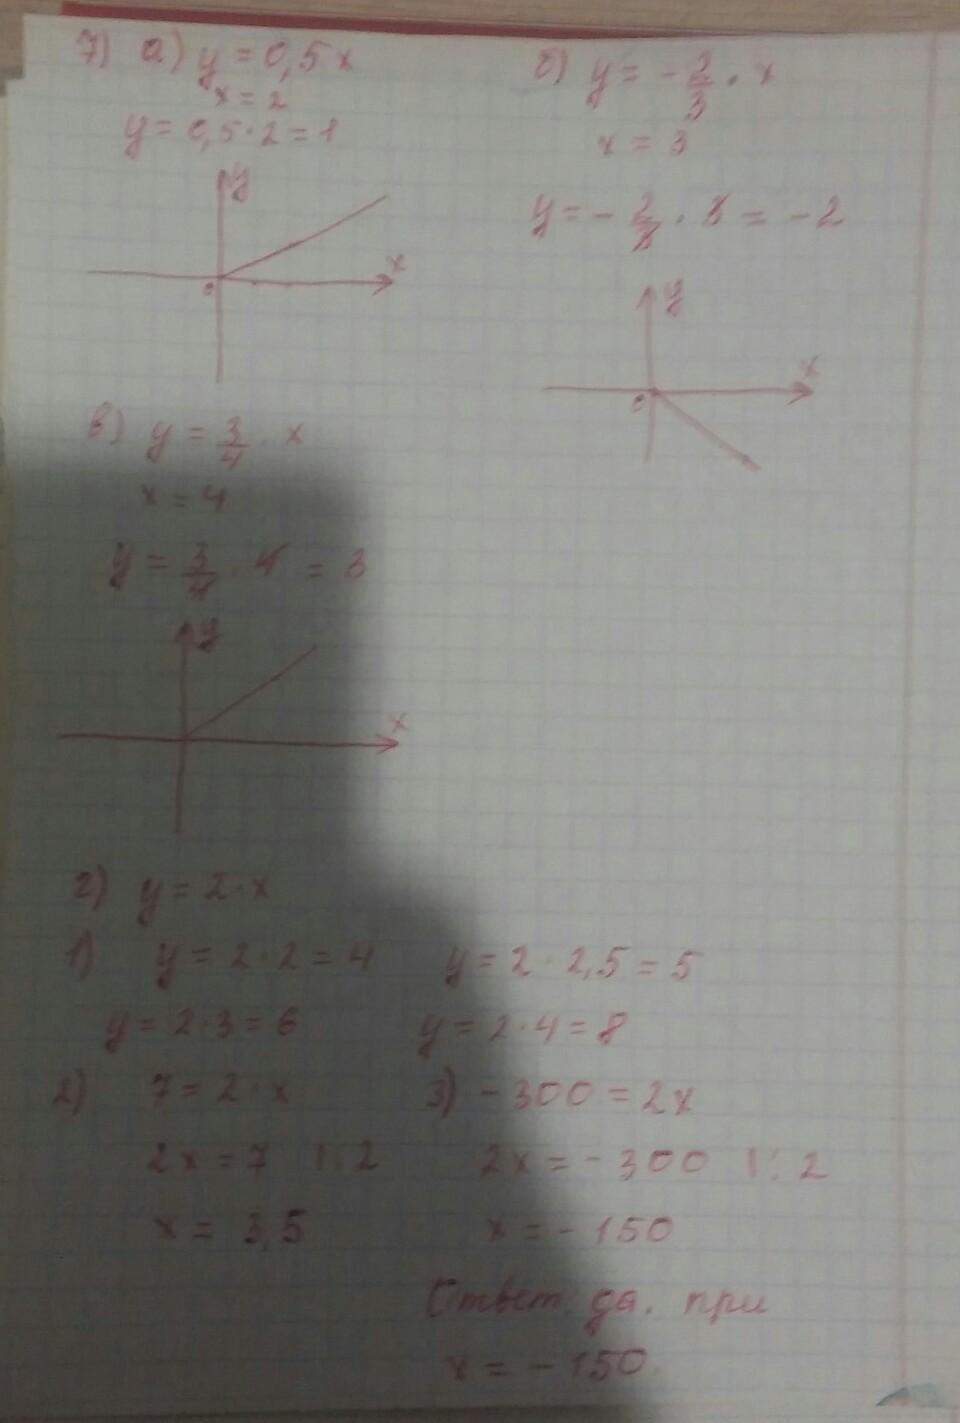 7) а) y = 0,5x
x = 2
y = 0,5 · 2 = 1
y
x
0
б) y = - 2/3 · x
x = 3
y = - 2/3 · 3 = -2
y
x
0
в) y = 3/4 · x
x = 4
y = 3/4 · 4 = 3
y
x
г) y = 2 · x
1) y = 2 · 2 = 4 y = 2 · 2,5 = 5
y = 2 · 3 = 6 y = 2 · 4 = 8
2) 7 = 2 · x 3) - 300 = 2x
2x = 7 | : 2 2x = - 300 | : 2
x = 3,5 x = - 150
Ответ: да. при
x = - 150